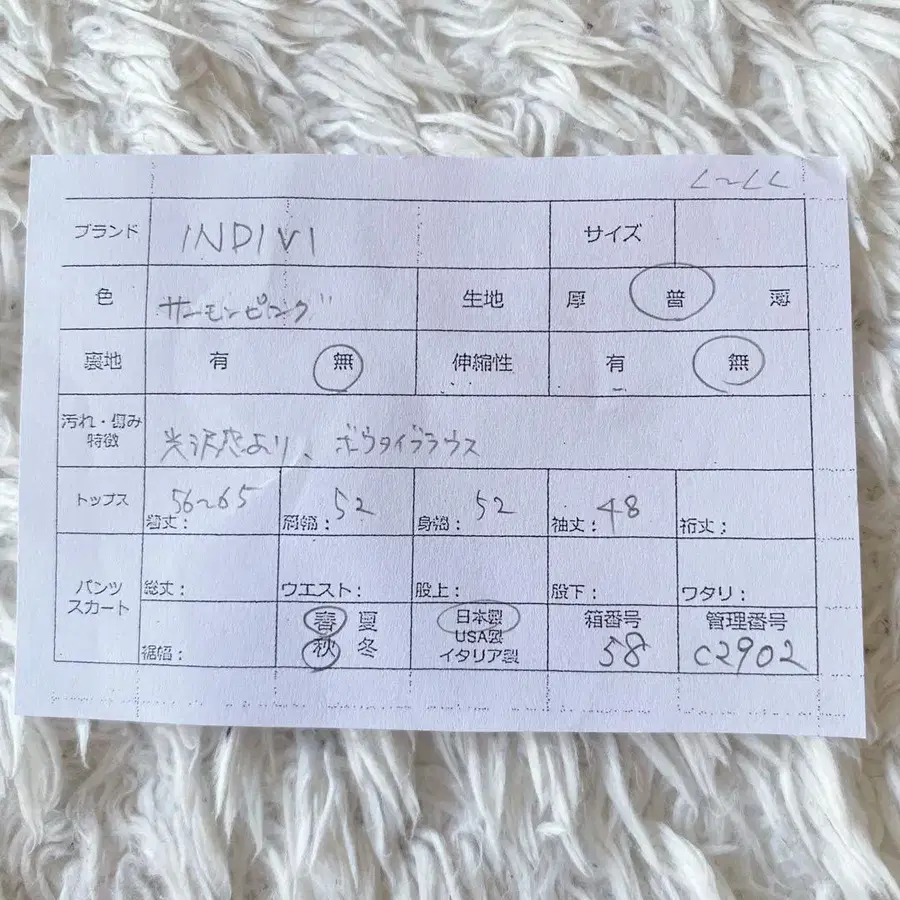 L〜LL
ブランド INDIVI サイズ
色 サーモンピンク 生地 厚 普 薄
裏地 有 無 伸縮性 有 無
汚れ・傷み
特徴 光沢感あり、ボウタイブラウス
トップス 着丈：56〜65 肩幅：52 身幅：52 袖丈：48 裄丈：
パンツ
スカート 総丈： ウエスト： 股上： 股下： ワタリ：
裾幅： 春 夏
秋 冬
日本製
USA製
イタリア製
箱番号
58
管理番号
C2902